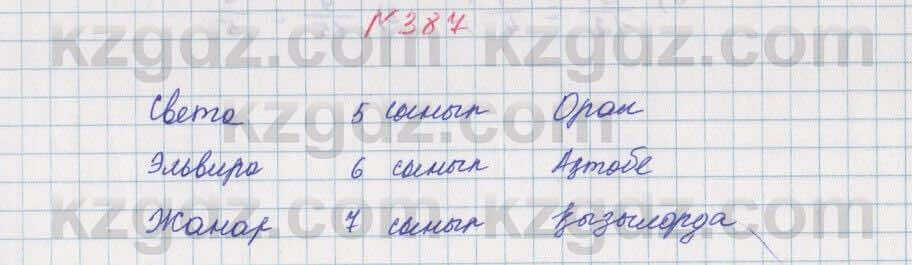 № 387
Света 5 сынып Орал
Эльвира 6 сынып Ақтөбе
Жанар 7 сынып Қызылорда
kzgdz.com kzgdz.com
kzgdz.com
kzgdz.com kzgdz.com